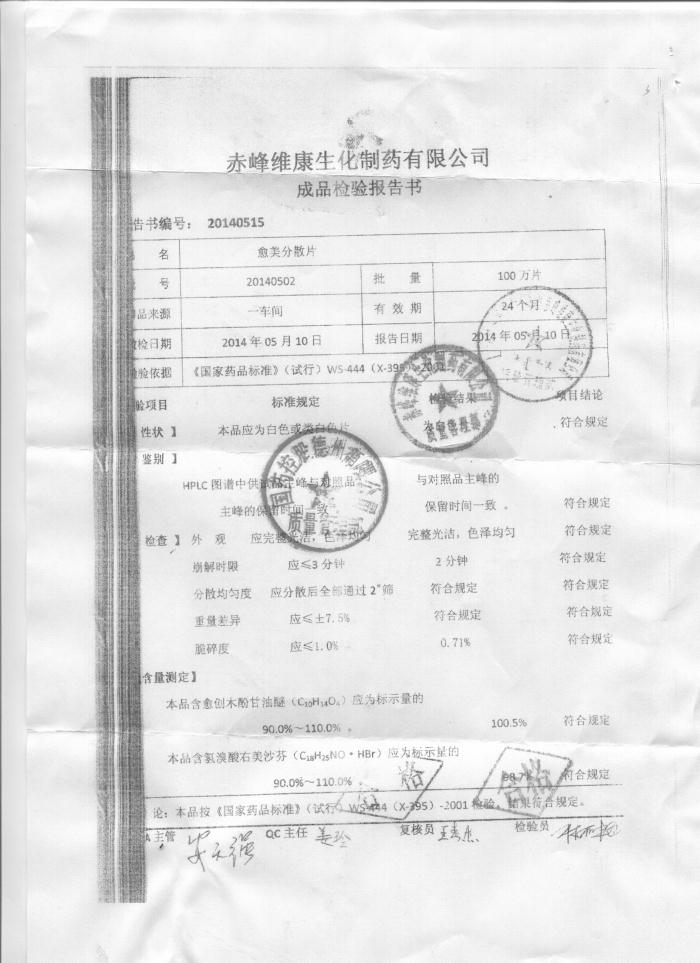 赤峰维康生化制药有限公司
成品检验报告书
告书编号： 20140515
名 愈美分散片
号 20140502 批 量 100 万片
品来源 一车间 有 效 期 24 个月
检日期 2014 年 05 月 10 日 报告日期 2014 年 05 月 10 日
验依据 《国家药品标准》（试行）WS-444（X-395）-2001
验项目 标准规定 检验结果 项目结论
性状 】 本品应为白色或类白色片 为白色片 符合规定
鉴别 】
HPLC 图谱中供试品主峰与对照品 与对照品主峰的
主峰的保留时间一致 保留时间一致 。 符合规定
检查 】 外 观 应完整光洁，色泽均匀 完整光洁，色泽均匀 符合规定
崩解时限 应≤3 分钟 2 分钟 符合规定
分散均匀度 应分散后全部通过 2#筛 符合规定 符合规定
重量差异 应≤±7.5% 符合规定 符合规定
脆碎度 应≤1.0% 0.71% 符合规定
含量测定】
本品含愈创木酚甘油醚（C10H14O4）应为标示量的
90.0%～110.0% 。 100.5% 符合规定
本品含氢溴酸右美沙芬（C18H25NO·HBr）应为标示量的
90.0%～110.0% 。 98.7% 符合规定
合格
合格
论：本品按《国家药品标准》（试行）WS-444（X-395）-2001 检验，结果符合规定。
A 主管 QC 主任 姜玲 复核员 检验员
质量管理部
质量管理